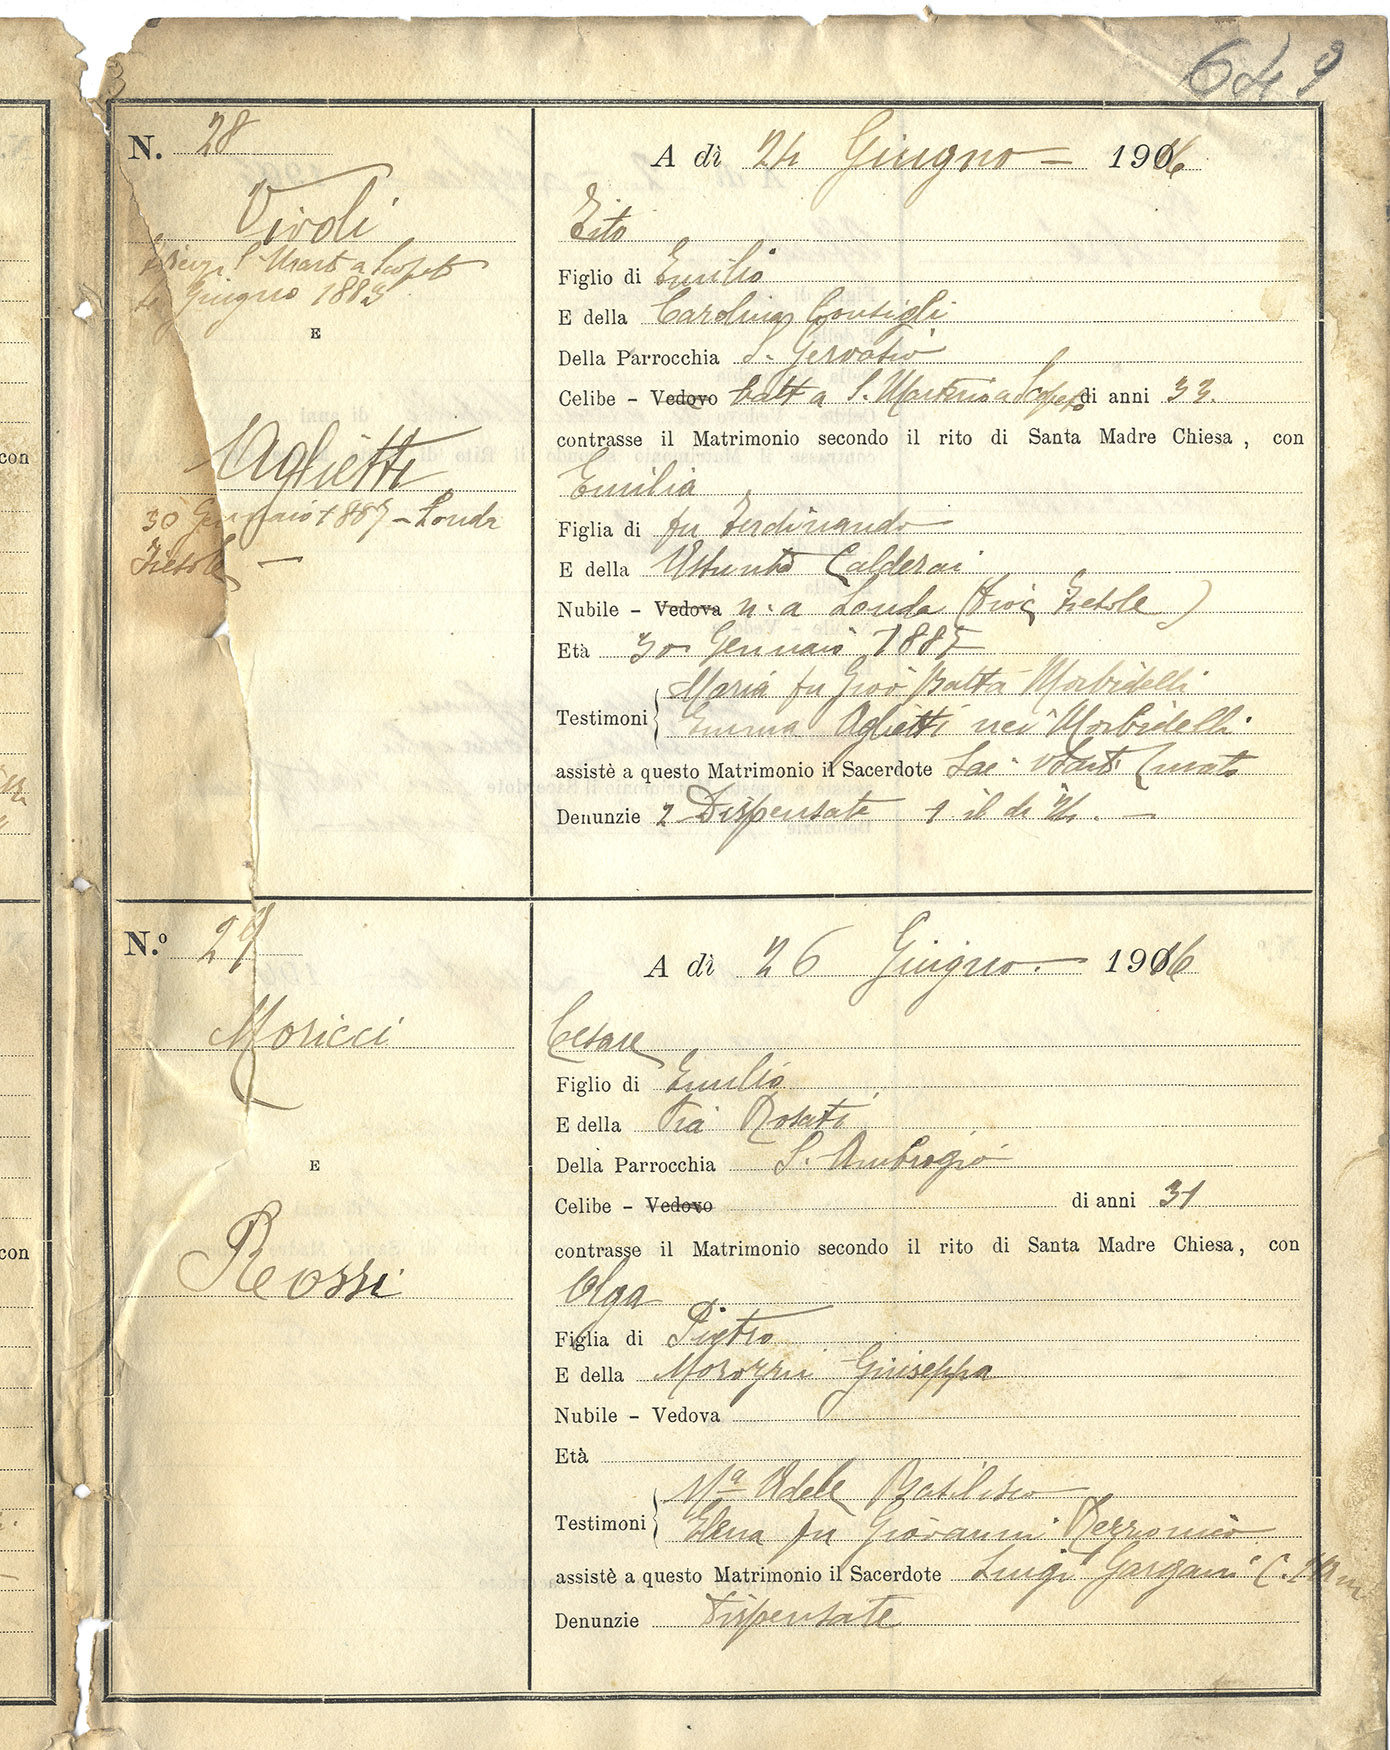 649
N. 28
A dì 24 Giugno 1916
Viroli
Giugno 1883
E
Zito
Figlio di Emilio
E della Carolina Consigli
Della Parrocchia S. Gervasio
Celibe – Vedovo batt a S. Martino a Scopeto di anni 33.
contrasse il Matrimonio secondo il rito di Santa Madre Chiesa, con
Aglietti
30 Gennaio 1887 – Londa
Fiesole –
Emilia
Figlia di fu Ferdinando
E della Assunta Calderai
Nubile – Vedova n. a Londa (Dioc Fiesole)
Età 30 Gennaio 1887
Testimoni Maria fu Giov Batta Morbidelli
Emma Aglietti nei Morbidelli
assistè a questo Matrimonio il Sacerdote Curato
Denunzie 2 Dispensate 1 il dì 24. –
N.º 29
A dì 26 Giugno. 1916
Moricci
E
Rossi
Cesare
Figlio di Emilio
E della Pia Rosati
Della Parrocchia S. Ambrogio
Celibe – Vedovo di anni 31
contrasse il Matrimonio secondo il rito di Santa Madre Chiesa, con
Olga
Figlia di Pietro
E della Morozzi Giuseppa
Nubile – Vedova
Età
Testimoni Mª Adele Basilisco
Elena fu Giovanni Rezzonico
assistè a questo Matrimonio il Sacerdote Luigi Gargani
Denunzie Dispensate